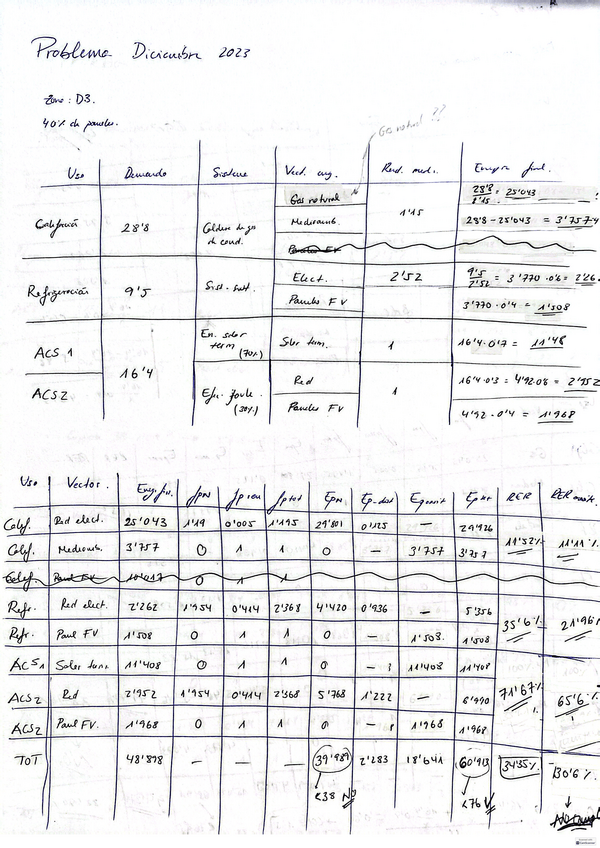 Problema Diciembre 2023
Zona: D3.
40% de paneles.
Gas natural ??
Uso Demanda Sistema Vect. eng. Rend. medi. Energía final.
Calefacción 28'8 Caldera de gas de cond. Gas natural 1'15 28'8 / 1'15 = 25'043
Medioamb. 28'8 - 25'043 = 3'757
Refrigeración 9'5 Sist. Elect. 2'52 9'5 / 2'52 = 3'770 · 0'6 = 2'26
Paneles FV 3'770 · 0'4 = 1'508
ACS 1 16'4 En. solar term (70%) Solar term. 1 16'4 · 0'7 = 11'48
ACS2 Efe. Joule. (30%) Red 1 16'4 · 0'3 = 4'92 · 0'6 = 2'952
Paneles FV 4'92 · 0'4 = 1'968
Uso Vector. Eng. fin. fpN fp ren fp tot EpN Ep tot RER
Calef. Red elect. 25'043 1'19 0'005 1'195 29'801 0'125 — 29'926
Calef. Medioamb. 3'757 0 1 1 0 — 3'757 3'757 11'52% 11'11%
Calef. Panel FV 10'017 0 1 1
Refr. Red elect. 2'262 1'954 0'414 2'368 4'420 0'936 — 5'356
Refr. Panel FV. 1'508 0 1 1 0 — 1'508. 1'508 35'6% 21'96%
ACS1 Solar term. 11'408 0 1 1 0 — 11'408 11'408
ACS2 Red 2'952 1'954 0'414 2'368 5'768 1'222 — 6'990 71'67% 65'6%
ACS2 Panel FV. 1'968 0 1 1 0 — 1'968 1'968
TOT 48'898 — — — 39'989 2'283 18'641 60'913 34'35% 30'6%
<38 NO <76 V